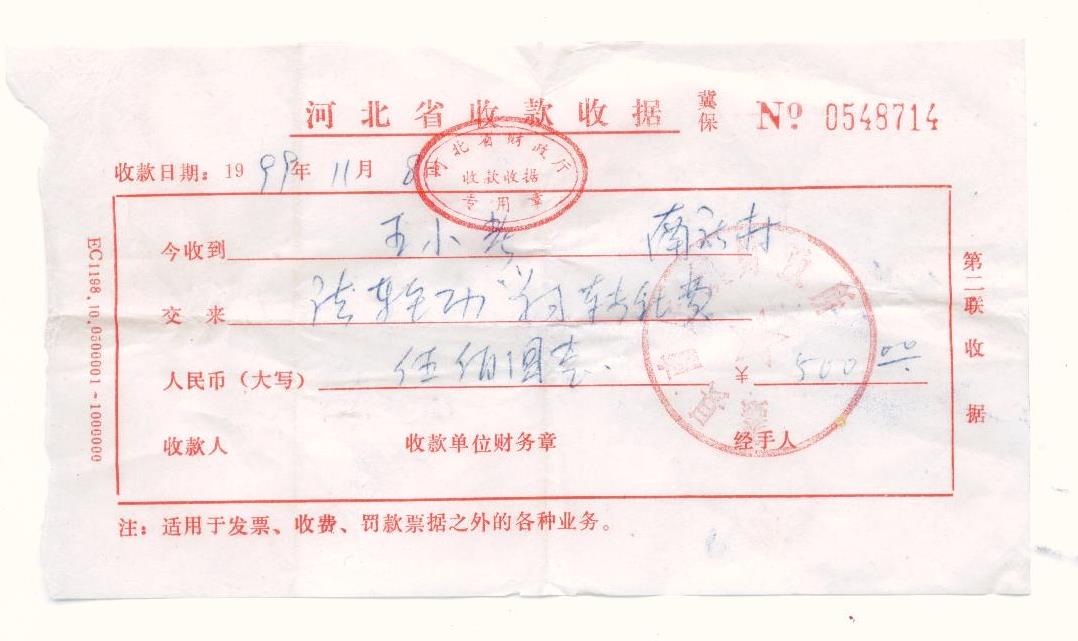 河北省收款收据 冀保 № 0548714
河北省财政厅
收款收据
专用章
收款日期：1999年11月8日
今收到 王小 南 村
交来 法轮功 转化费
人民币（大写） 伍佰圆 500.00
收款人 收款单位财务章 经手人
注：适用于发票、收费、罚款票据之外的各种业务。
EC1198.10.0500001~1000000
第二联 收据